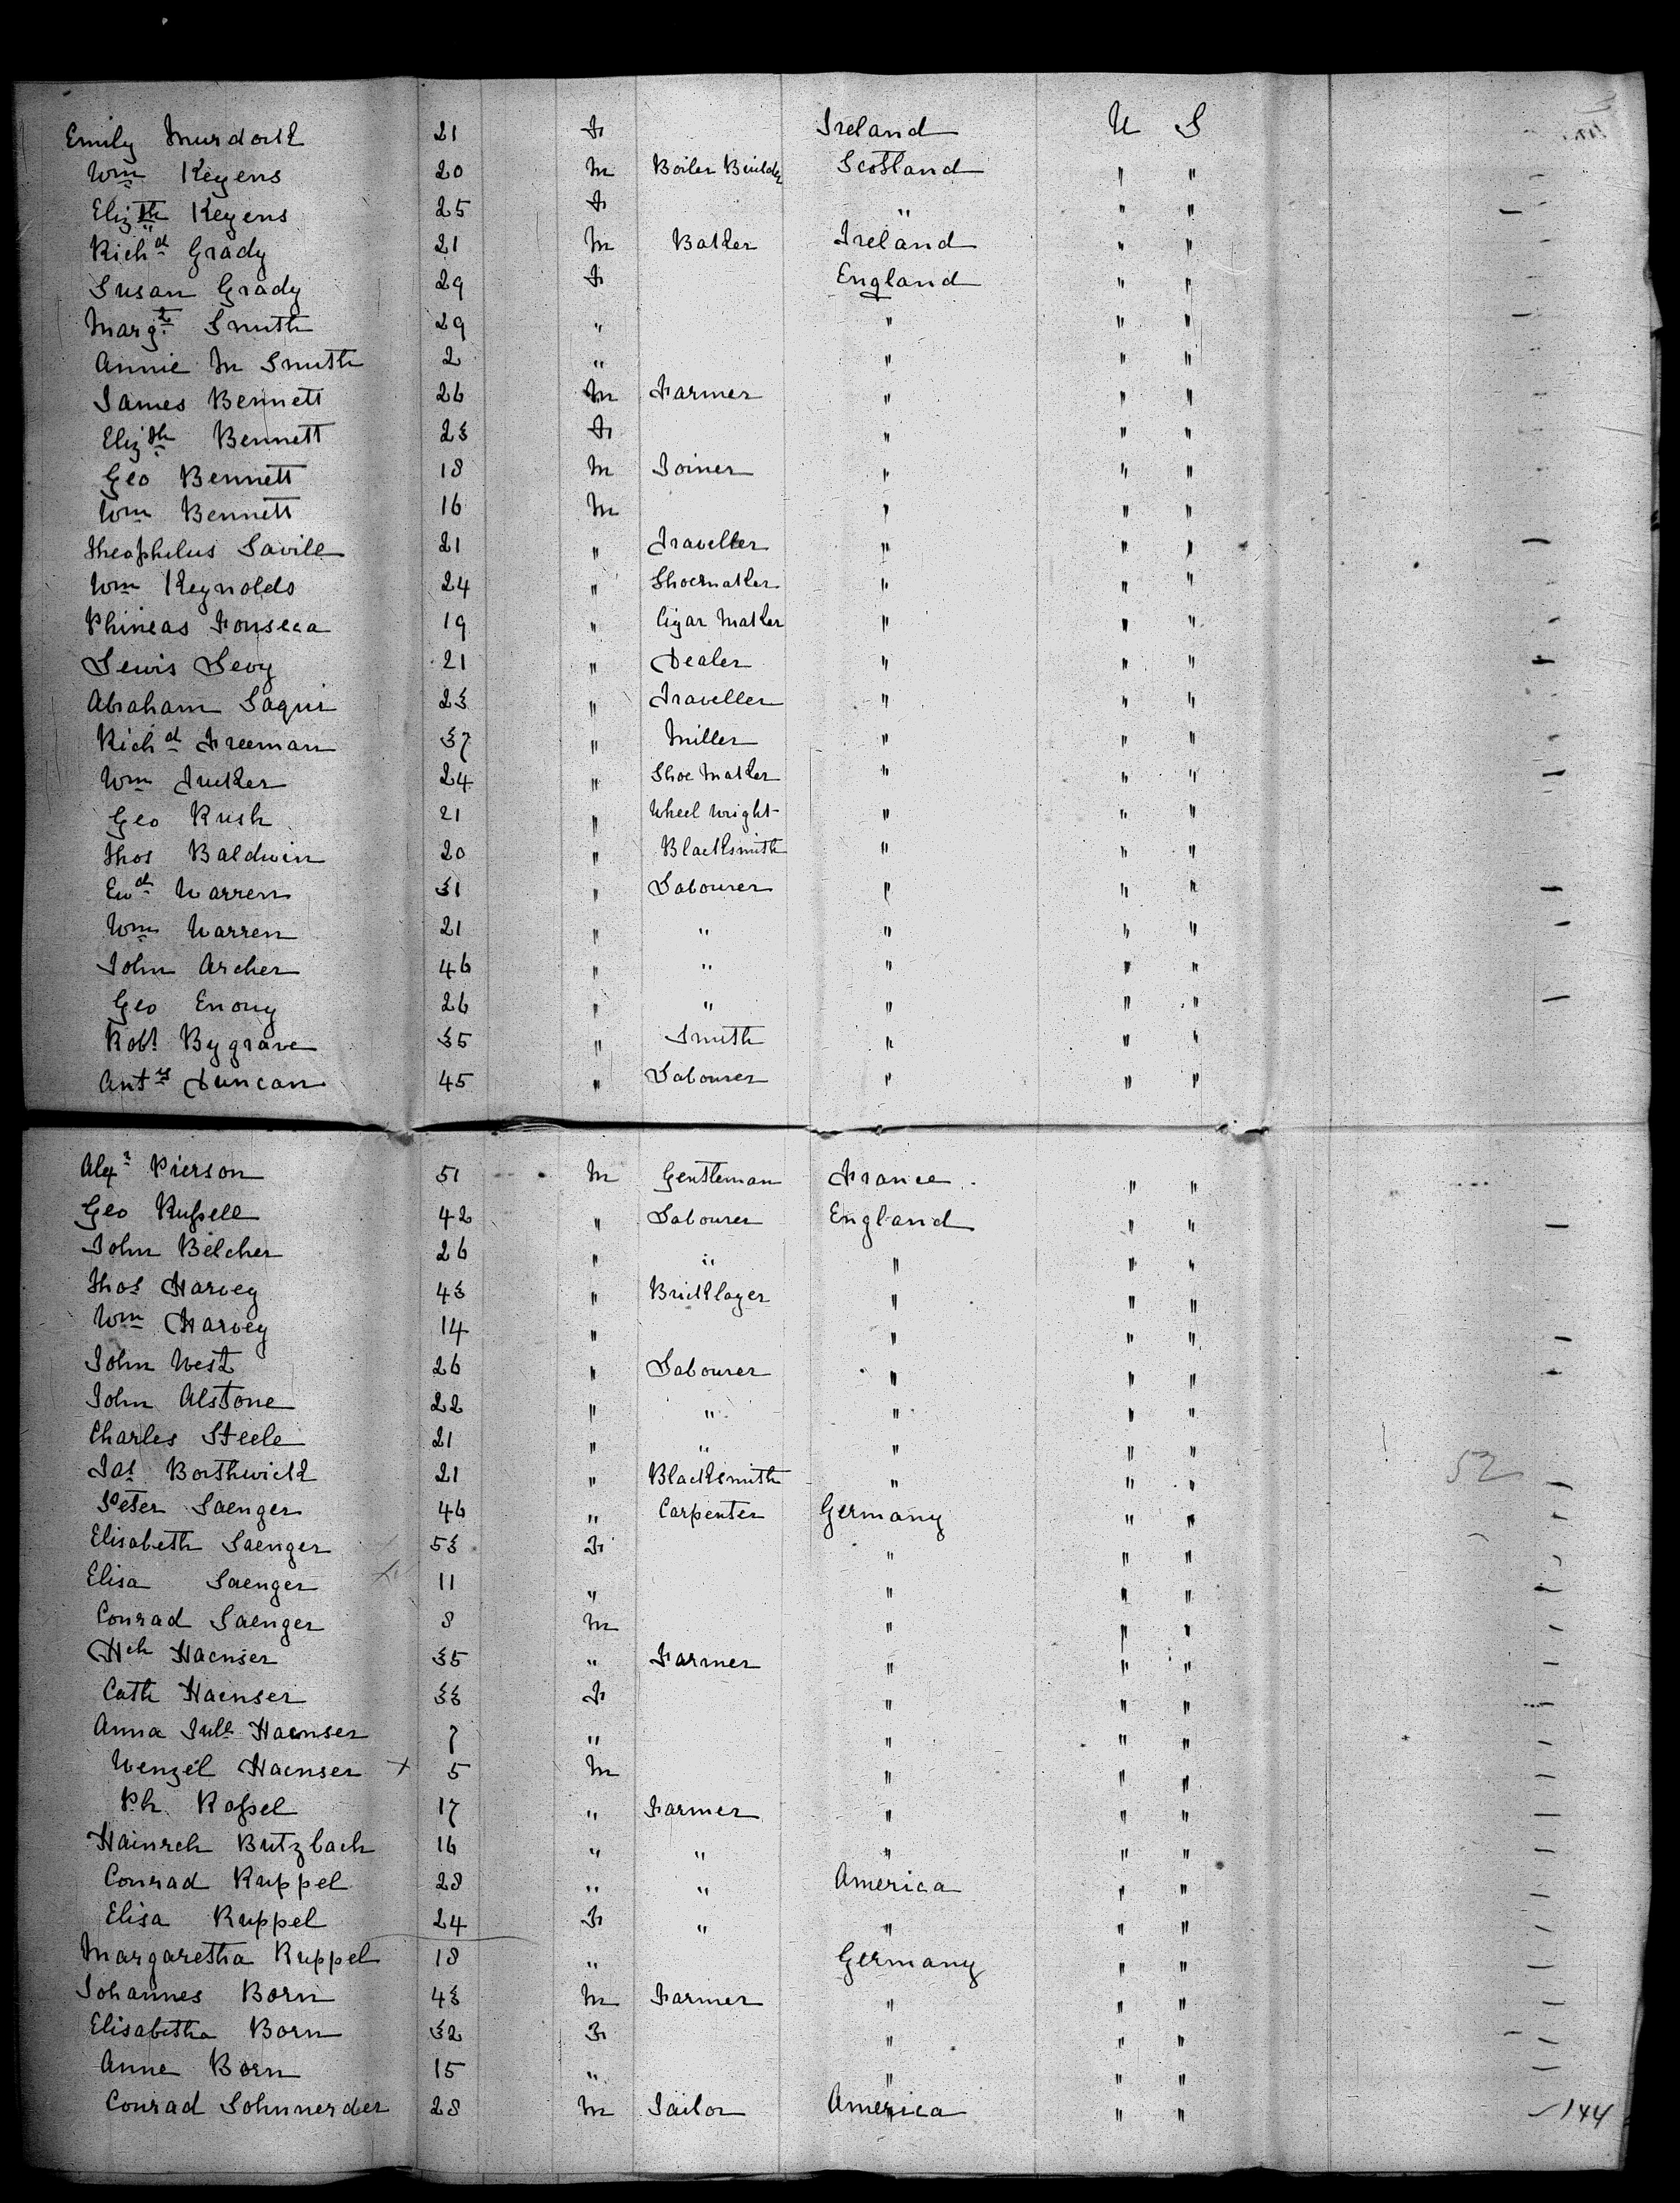 Emily Murdock 21 F Ireland U S
Wm Keyens 20 M Boiler Builder Scotland " "
Elizth Keyens 25 F " " "
Richd Grady 21 M Baker Ireland " "
Susan Grady 29 F England " "
Margt Smith 29 " " " "
Annie M Smith 2 " " " "
James Bennett 26 M Farmer " " "
Elizth Bennett 23 F " " "
Geo Bennett 18 M Joiner " " "
Wm Bennett 16 M " " "
Theophilus Savill 21 " Traveller " " "
Wm Reynolds 24 " Shoemaker " " "
Phineas Fonseca 19 " Cigar Maker " " "
Lewis Levy 21 " Dealer " " "
Abraham Saqui 23 " Traveller " " "
Richd Freeman 37 " Miller " " "
Wm Tucker 24 " Shoe Maker " " "
Geo Rush 21 " Wheel Wright " " "
Thos Baldwin 20 " Blacksmith " " "
Ewd Warren 31 " Labourer " " "
Wm Warren 21 " " " " "
John Archer 46 " " " " "
Geo Enony 26 " " " " "
Robt Bygrave 35 " Smith " " "
Anty Duncan 45 " Labourer " " "
Alexr Pierson 51 M Gentleman France " "
Geo Russell 42 " Labourer England " "
John Belcher 26 " " " " "
Thos Harvey 43 " Bricklayer " " "
Wm Harvey 14 " " " "
John West 26 " Labourer " " "
John Alstone 22 " " " " "
Charles Steele 21 " " " " "
Jas Borthwick 21 " Blacksmith " " " 52
Peter Saenger 46 " Carpenter Germany " "
Elisabeth Saenger 53 F " " "
Elisa Saenger 11 " " " "
Conrad Saenger 8 M " " "
Hch Haenser 35 " Farmer " " "
Cath Haenser 33 F " " "
Anna Jule Haenser 7 " " " "
Wenzel Haenser x 5 M " " "
Ph. Rossel 17 " Farmer " " "
Hainrch Butzbach 16 " " " " "
Conrad Ruppel 28 " " America " "
Elisa Ruppel 24 F " " " "
Margaretha Ruppel 18 " Germany " "
Johannes Born 43 M Farmer " " "
Elisabetha Born 32 F " " "
Anne Born 15 " " " "
Conrad Sohnnerder 28 M Tailor America " " 144